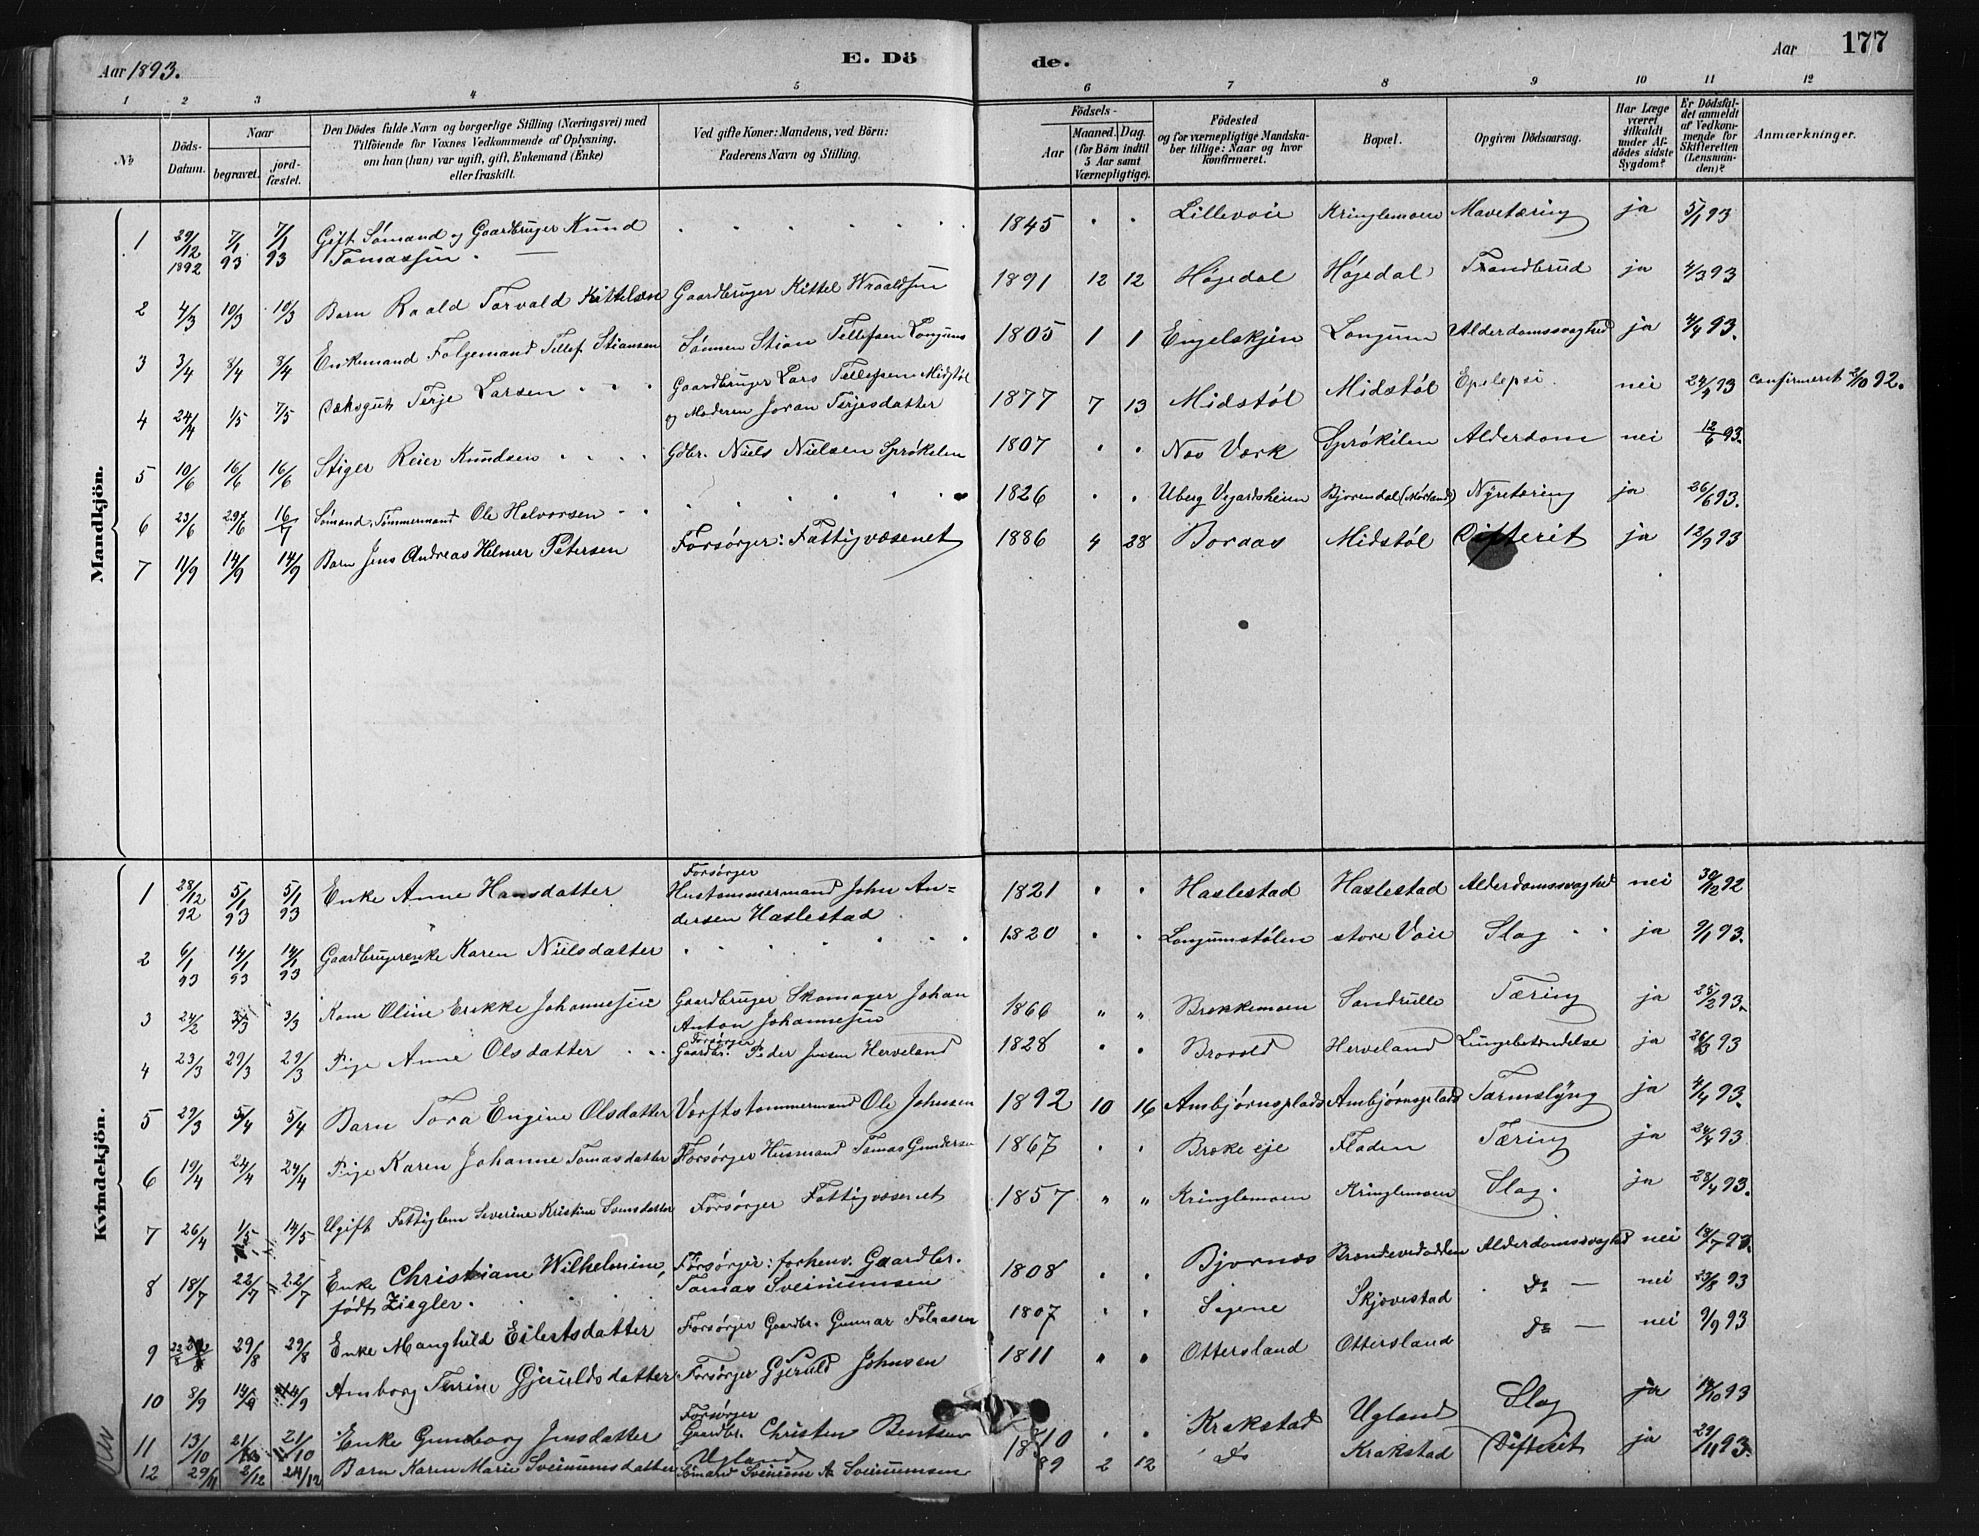 Aar 1893. E. Dö de. Aar 177
1 2 3 4 5 6 7 8 9 10 11 12
No
Döds-Datum.
Naar
begravet.
jord-fæstet.
Den Dödes fulde Navn og borgerlige Stilling (Næringsvei) med
Tilföiende for Voxnes Vedkommende af Oplysning,
om han (hun) var ugift, gift, Enkemand (Enke)
eller fraskilt.
Ved gifte Koner: Mandens, ved Börn:
Faderens Navn og Stilling.
Födsels-
Aar
Maaned. Dag.
(for Börn indtil
5 Aar samt
Værnepligtige).
Födested
og for værnepligtige Mandska-
ber tillige: Naar og hvor
konfirmeret.
Bopæl.
Opgiven Dödsaarsag.
Har Læge
været
tilkaldt
under Af-
dödes sidste
Sygdom?
Er Dödsfal-
det anmeldt
af Vedkom-
mende for
Skifteretten
(Lensman-
den)?
Anmærkninger.
Mandkjön.
1 29/12 1892 7/1 93 7/1 93 Gift Sømand og Gaardbruger Knud Tomassen. 1845 Lillevoie Kringlemoen Mavetæring ja 5/1 93
2 4/3 10/3 10/3 Barn Roald Torvald Kittelsen Gaardbruger Kittel Wraaldsen 1891 12 12 Højedal Højedal ja 4/3 93
3 3/4 8/4 8/4 Enkemand Folgemand Tellef Stiansen Sønnen Stian Tellefsen Longum 1805 1 1 Engelskjen Longum Alderdomssvaghed ja 4/4 93.
4 24/4 1/5 7/5 Terje Larsen Gaardbruger Lars Tellefsen Midstøl og Moderen Joran Terjesdatter 1877 7 13 Midstøl Midstøl Epelepsi. nei 24/4 93 confirmeret 2/10 92.
5 10/6 16/6 16/6 Stiger Reier Knudsen Gdbr. Niels Nielsen Sprøkelen 1807 Nes Værk Sprøkilen Alderdom nei 12/6 93.
6 23/6 29/6 16/7 Sømand, Tømmermand Ole Halvorsen 1826 Uberg Vegardsheien Bjorendal (Mørland) Nyretæring ja 26/6 93.
7 11/9 14/9 14/9 Barn Jens Andreas Helmer Petersen Forsørger: Fattigvæsenet 1886 4 28 Boraas Midstøl Difterit ja 12/9 93
Kvindekjön.
1 28/12 92 5/1 93 5/1 93 Enke Anne Hansdatter Forsørger Hustømmermand John Andersen Haslestad 1821 Haslestad Haslestad Alderdomssvaghed nei 30/12 92
2 6/1 93 14/1 93 14/1 93 Gaardbrugerenke Karen Nielsdatter 1820 Longumstølen store Voie Slag ja 9/1 93.
3 24/2 3/3 3/3 Kone Oline Erikke Johannesen Gaardbruger Skomager Johan Anton Johannesen 1866 Brekkemoen Sandrulle Tæring ja 25/2 93.
4 23/3 29/3 29/3 Pige Anne Olsdatter Forsørger Gaardbr. Peder Jensen Herveland 1828 Brovold Herveland Lungebetændelse ja 26/3 93
5 29/3 5/4 5/4 Barn Tora Engine Olsdatter Værftstømmermand Ole Johnsen 1892 10 16 Ambjørnsplads Ambjørnsplads Tarmslyng ja 4/4 93.
6 19/4 24/4 24/4 Pige Karen Johanne Tomasdatter Forsørger Husmand Tomas Gundersen 1867 Broke eje Fladen Tæring ja 24/4 93.
7 26/4 1/5 14/5 Ugift Fattiglem Severine Kristine Svensdatter Forsørger Fattigvæsenet 1857 Kringlemoen Kringlemoen Slag. ja 28/4 93.
8 18/7 22/7 22/7 Enke Christiane Wilhelmine, født Ziegler. Forsørger: forhenv. Gaardbr. Tomas Sveinumsen 1808 Bjornes Alderdomssvaghed nei 18/7 93.
9 22/8 29/8 29/8 Enke Manghild Eilertsdatter Forsørger Gaardbr. Gunnar Folaasen 1807 Sagene Skjovestad do nei 23/8 93
10 8/9 14/9 14/9 Amborg Terine Gjeruldsdatter Forsørger Gjeruld Johnsen 1811 Ottersland Ottersland do nei 9/9 93
11 13/10 21/10 21/10 Enke Gunborg Jensdatter Forsørger Gaardbr. Christen Bentsen Ugland 1810 Krakstad Ugland Slag ja 14/10 93
12 29/11 2/12 24/12 Barn Karen Marie Sveinumsdatter Sømand Sveinum A Sveinumsen 89 2 12 do Krakstad Difterit ja 29/11 93.